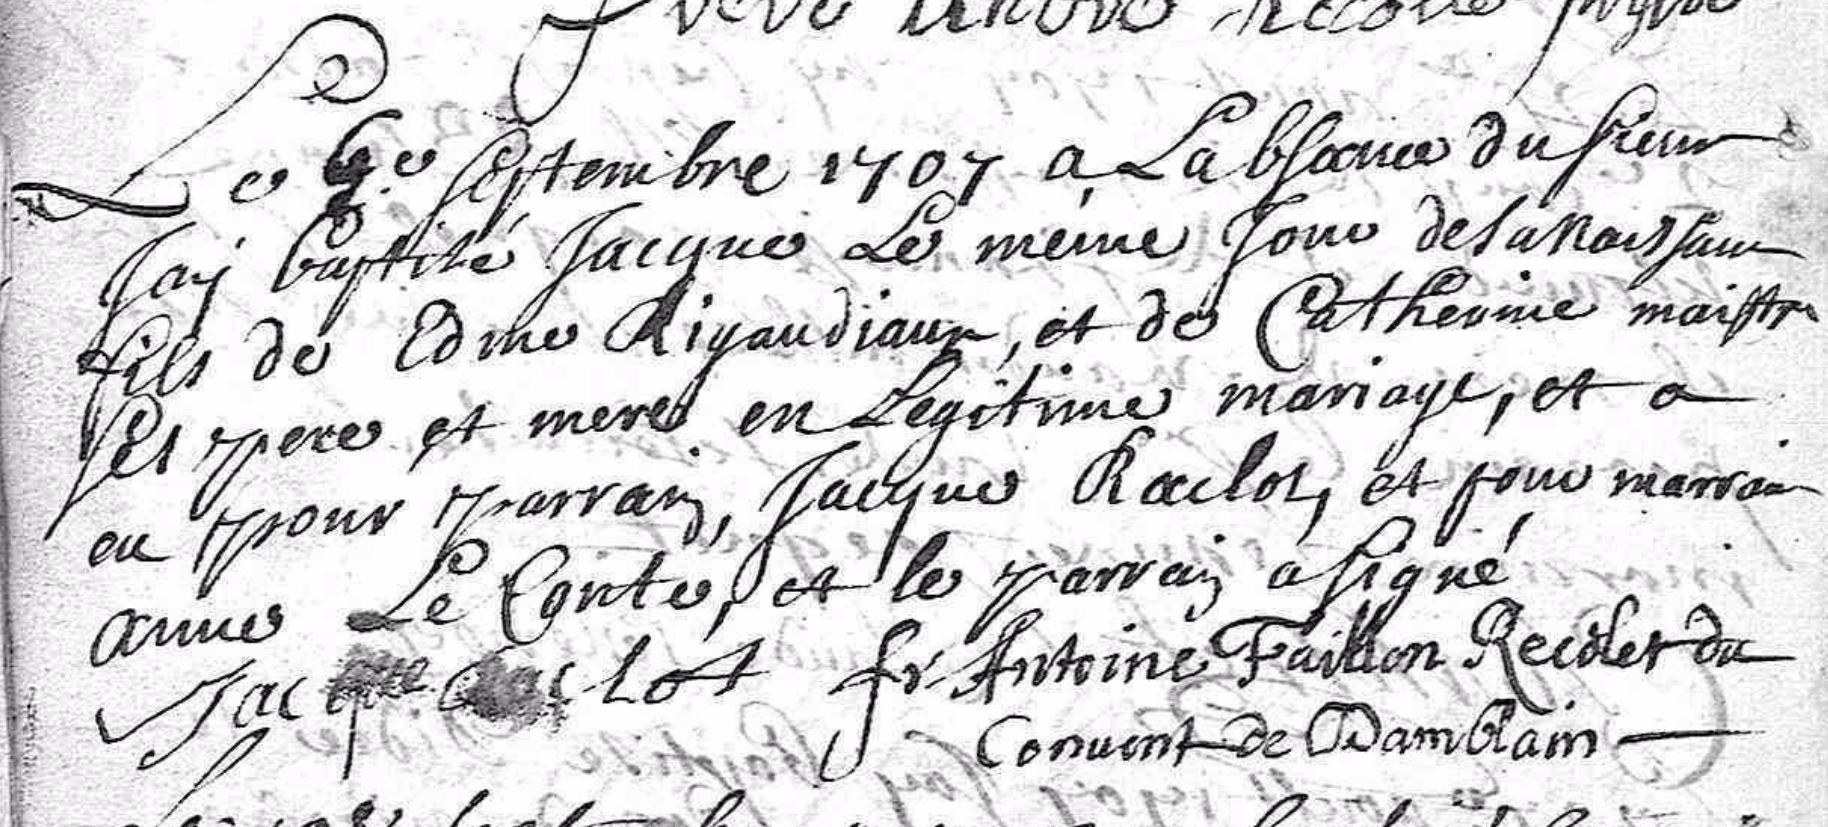 Le 6e septembre 1707 a Labsance du sieur
Jay baptisé Jacque Le même Jour de sa naissan
fils de Edme Rigaudiaux, et de Catherine maistr
ses pere et mere en Legitime mariage, et a
eu pour parrain, Jacque Raclot, et pour marrain
anne Le Conte, et le parrain a signé
Jacque Raclot fr Antoine Faillon Recolet du
Convent de Damblain